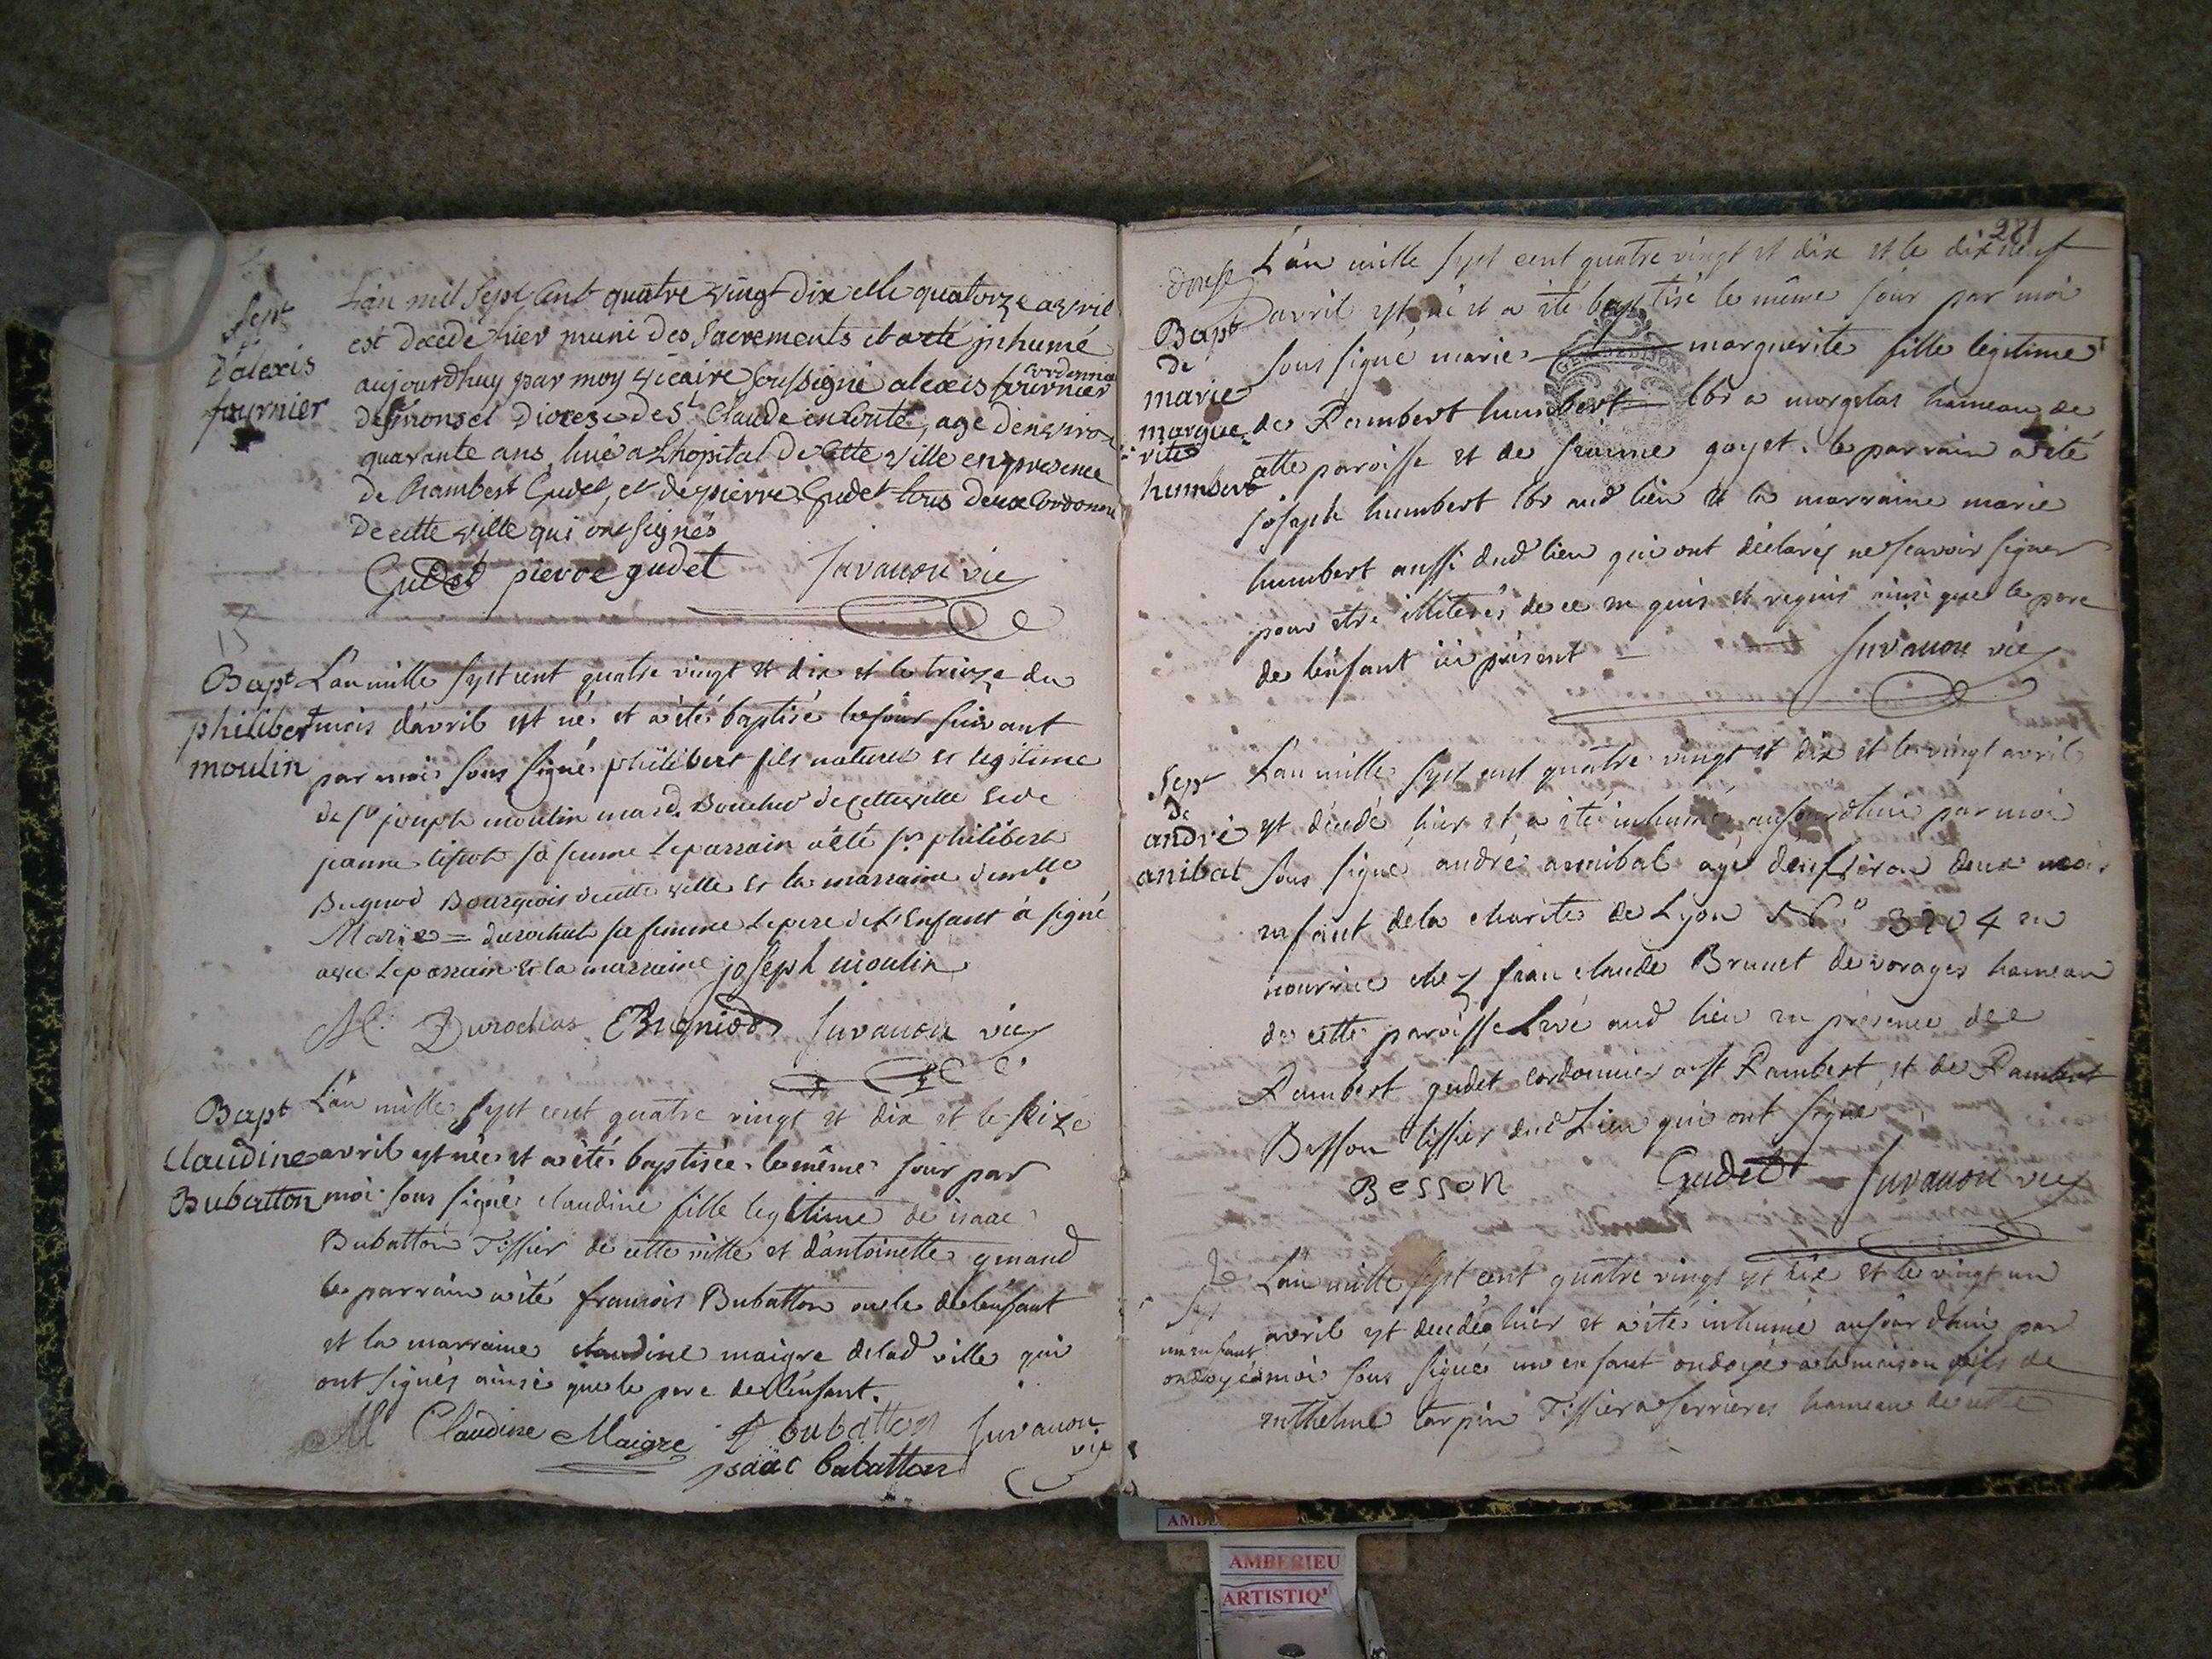 Sept
d'alexis
fournier
L'an mil Sept Cent quatre vingt dix et le quatorze avril
est decedé hier muni des Sacrements et a eté inhumé
aujourdhuy par moy vicaire soussigné alexis fournier cordonnier
de Diocese de St Claude en Comté, agé denviron
quarante ans, a Lhopital de Cette ville en presence
de Rambert Gudet, et de pierre Gudet tous deux Cordonn
de cette ville qui ont signés
Gudet pierre gudet Juvanon vic
15
Bapt
philibert
moulin
L'an mille sept cent quatre vingt et dix et le treize du
mois d'avril est né et a été baptisé le jour suivant
par moi sous signé philibert fils naturel et legitime
de sr joseph moulin mard. Boucher de Cette ville et de
jeanne tissot sa femme Le parrain a été sr philibert
Bugnod Bourgeois de cette ville et la marraine demelle
Marie = durochat sa femme Le pere de L'Enfant a signé
avec Le parrain et la marraine joseph moulin
M. Durochas Bugniod Juvanon vic
Bapt
Claudine
Bubatton
L'an mille sept cent quatre vingt et dix et le seize
avril est née et a été baptisée le même jour par
moi sous signé claudine fille legitime de isaac
Bubatton Tissier de cette ville et d'antoinette genaud
le parrain a été francois Bubatton oncle de lenfant
et la marraine claudine maigre de lad ville qui
ont signés ainsi que le pere de l'enfant.
Claudine Maigre f bubatton Juvanon
vic
isaac babatton
281
L'an mille sept cent quatre vingt et dix et le dix neuf
Bapt
de
marie
margue-
rite
humbert
avril est né et a été baptisé le même jour par moi
sous signé marie marguerite fille legitime
de Rambert humbert lbr a morgelas hameau de
cette paroisse et de goyet. le parrain a été
joseph humbert lbr aud lien et la marraine marie
humbert aussi dud lieu qui ont déclarés ne scavoir signer
pour etre illiterés de ce en quis et requis ainsi que le pere
de l'enfant ici présent Juvanon vic
Sept
de
andré
anibal
L'an mille sept cent quatre vingt et dix et le vingt avril
est décédé hier et a été inhumé aujourdhui par moi
sous signé andré annibal agé d'environ deux mois
enfant de la charité de Lyon N.° 3204 en
nourrice chez claude Brunet de vorages hameau
de cette paroisse aud lieu en présence de
Rambert gudet cordonnier a st Rambert, et de Rambert
Besson tissier dud Lieu qui ont signe
Besson Gudet Juvanon vic
Sept
un enfant
ondoyé
L'an mille sept cent quatre vingt et dix et le vingt un
avril est décédé hier et a été inhumé aujourdhui par
moi sous signé un enfant ondoyé a la maison fils de
enthelme tarpin Tissier a serrieres hameau de cette
AMBERIEU
ARTISTIQ'